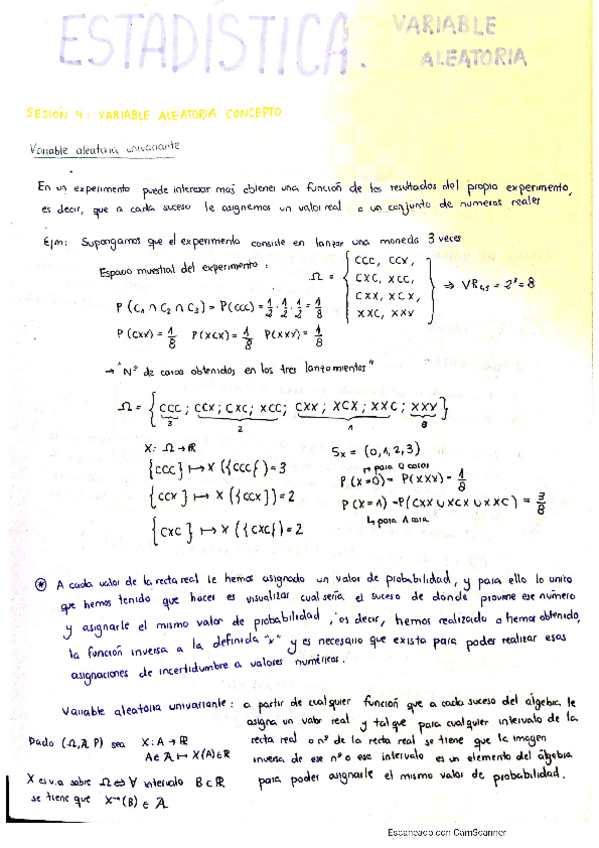 ESTADÍSTICA.
VARIABLE
ALEATORIA
SESIÓN 4: VARIABLE ALEATORIA CONCEPTO
Variable aleatoria univariante
En un experimento puede interesar mas obtener una función de los resultados del propio experimento,
es decir, que a cada suceso le asignemos un valor real o un conjunto de numeros reales
Ejm: Supongamos que el experimento consiste en lanzar una moneda 3 veces
Espacio muestral del experimento:
Ω = { CCC, CCX,
CXC, XCC,
CXX, XCX,
XXC, XXX } ⇒ VR₄,₅ = 2³ = 8
P(C₁ ∩ C₂ ∩ C₃) = P(CCC) = 1/2 · 1/2 · 1/2 = 1/8
P(CXX) = 1/8 P(XCX) = 1/8 P(XXX) = 1/8
→ "Nº de caras obtenidos en los tres lanzamientos"
Ω = { CCC ; CCX ; CXC ; XCC ; CXX ; XCX ; XXC ; XXX }
3 2 1 0
X: Ω → ℝ
{CCC} ↦ X({CCC}) = 3
{CCX} ↦ X({CCX}) = 2
{CXC} ↦ X({CXC}) = 2
Sx = (0,1,2,3)
↱ para 0 caras
P(X=0) = P(XXX) = 1/8
P(X=1) = P(CXX ∪ XCX ∪ XXC) = 3/8
↳ para 1 cara
* A cada valor de la recta real le hemos asignado un valor de probabilidad, y para ello lo unico
que hemos tenido que hacer es visualizar cual sería el suceso de donde proviene ese número
y asignarle el mismo valor de probabilidad, es decir, hemos realizado o hemos obtenido,
la función inversa a la definida "x" y es necesario que exista para poder realizar esas
asignaciones de incertidumbre a valores numéricos.
Variable aleatoria univariante: a partir de cualquier función que a cada suceso del álgebra le
asigna un valor real y tal que para cualquier intervalo de la
recta real o nº de la recta real se tiene que la imagen
inversa de ese nº o ese intervalo es un elemento del álgebra
para poder asignarle el mismo valor de probabilidad.
Dado (Ω, A, P) sea X: A → ℝ
A ∈ A ↦ X(A) ∈ ℝ
X es v.a sobre Ω ⇔ ∀ intervalo B ⊂ ℝ
se tiene que X⁻¹(B) ∈ A
Escaneado con CamScanner